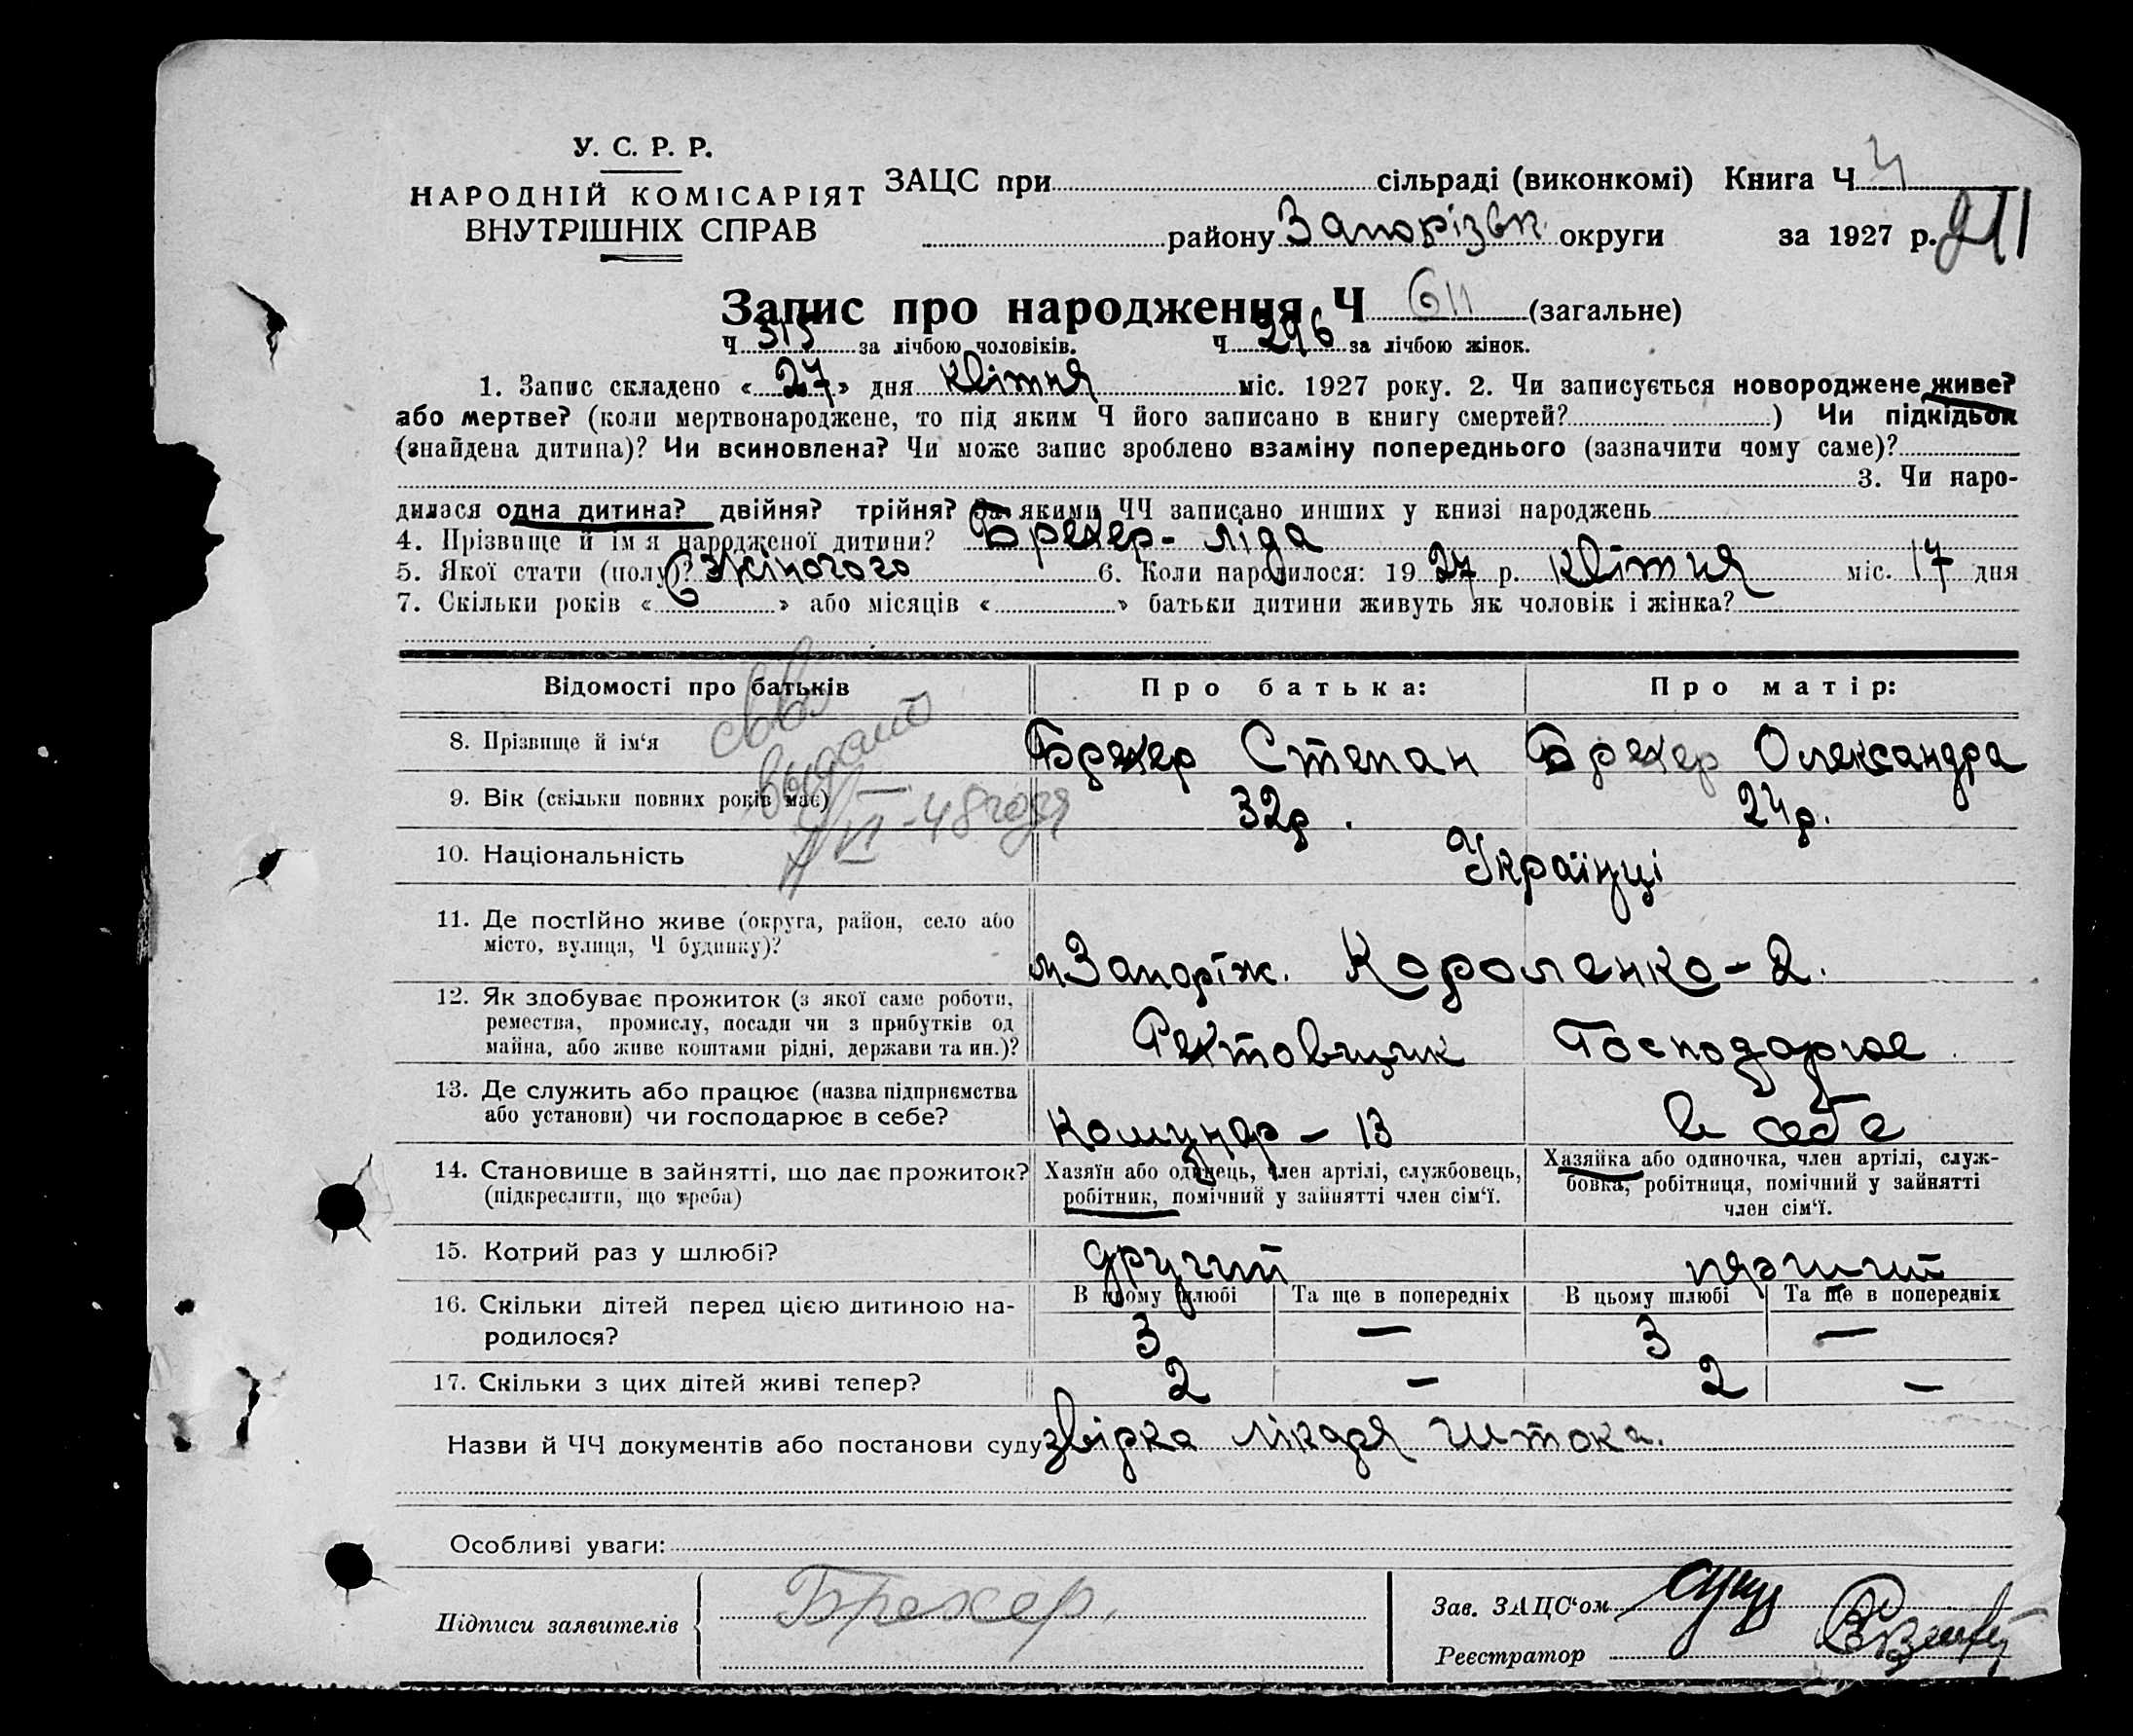 У. С. Р. Р.
НАРОДНІЙ КОМІСАРІЯТ
ВНУТРІШНІХ СПРАВ
ЗАЦС при сільраді (виконкомі) Книга Ч 4
району Запорізьк. округи за 1927 р. 211
Запис про народження Ч 611 (загальне)
Ч 315 за лічбою чоловіків. Ч 296 за лічбою жінок.
1. Запис складено « 27 » дня квітня міс. 1927 року. 2. Чи записується новороджене живе?
або мертве? (коли мертвонароджене, то під яким Ч його записано в книгу смертей? ) Чи підкідьок
(знайдена дитина)? Чи всиновлена? Чи може запис зроблено взаміну попереднього (зазначити чому саме)?
3. Чи наро-
дилася одна дитина? двійня? трійня? За якими ЧЧ записано инших у книзі народжень
4. Прізвище й ім я народженої дитини? Брехер - Ліда
5. Якої стати (полу)? жіночого 6. Коли народилося: 19 27 р. квітня міс. 17 дня
7. Скільки років « 6 » або місяців « » батьки дитини живуть як чоловік і жінка?
Відомості про батьків Про батька: Про матір:
8. Прізвище й ім‘я Брехер Степан Брехер Олександра
выдано
9. Вік (скільки повних років має) 32р. 24р.
VI - 48 года
10. Національність Українці
11. Де постІйно живе (округа, район, село або
місто, вулиця, Ч будинку)? м Запоріж. Короленко - 2.
12. Як здобуває прожиток (з якої саме роботи,
ремества, промислу, посади чи з прибутків од
майна, або живе коштами рідні, держави та ин.)? Рехтовщик Господарює
13. Де служить або працює (назва підприємства
або установи) чи господарює в себе? Комунар - 13 в себе
14. Становище в зайнятті, що дає прожиток?
(підкреслити, що треба)
Хазяїн або одинець, член артілі, службовець,
робітник, помічний у зайнятті член сім‘ї.
Хазяйка або одиночка, член артілі, служ-
бовка, робітниця, помічний у зайнятті
член сім‘ї.
15. Котрий раз у шлюбі? другий перший
В цьому шлюбі Та ще в попередніх В цьому шлюбі Та ще в попередніх
16. Скільки дітей перед цією дитиною на-
родилося? 3 — 3 —
17. Скільки з цих дітей живі тепер? 2 — 2 —
Назви й ЧЧ документів або постанови суду звірка лікаря Штока.
Особливі уваги:
Підписи заявителів Брехер.
Зав. ЗАЦС‘ом
Реєстратор